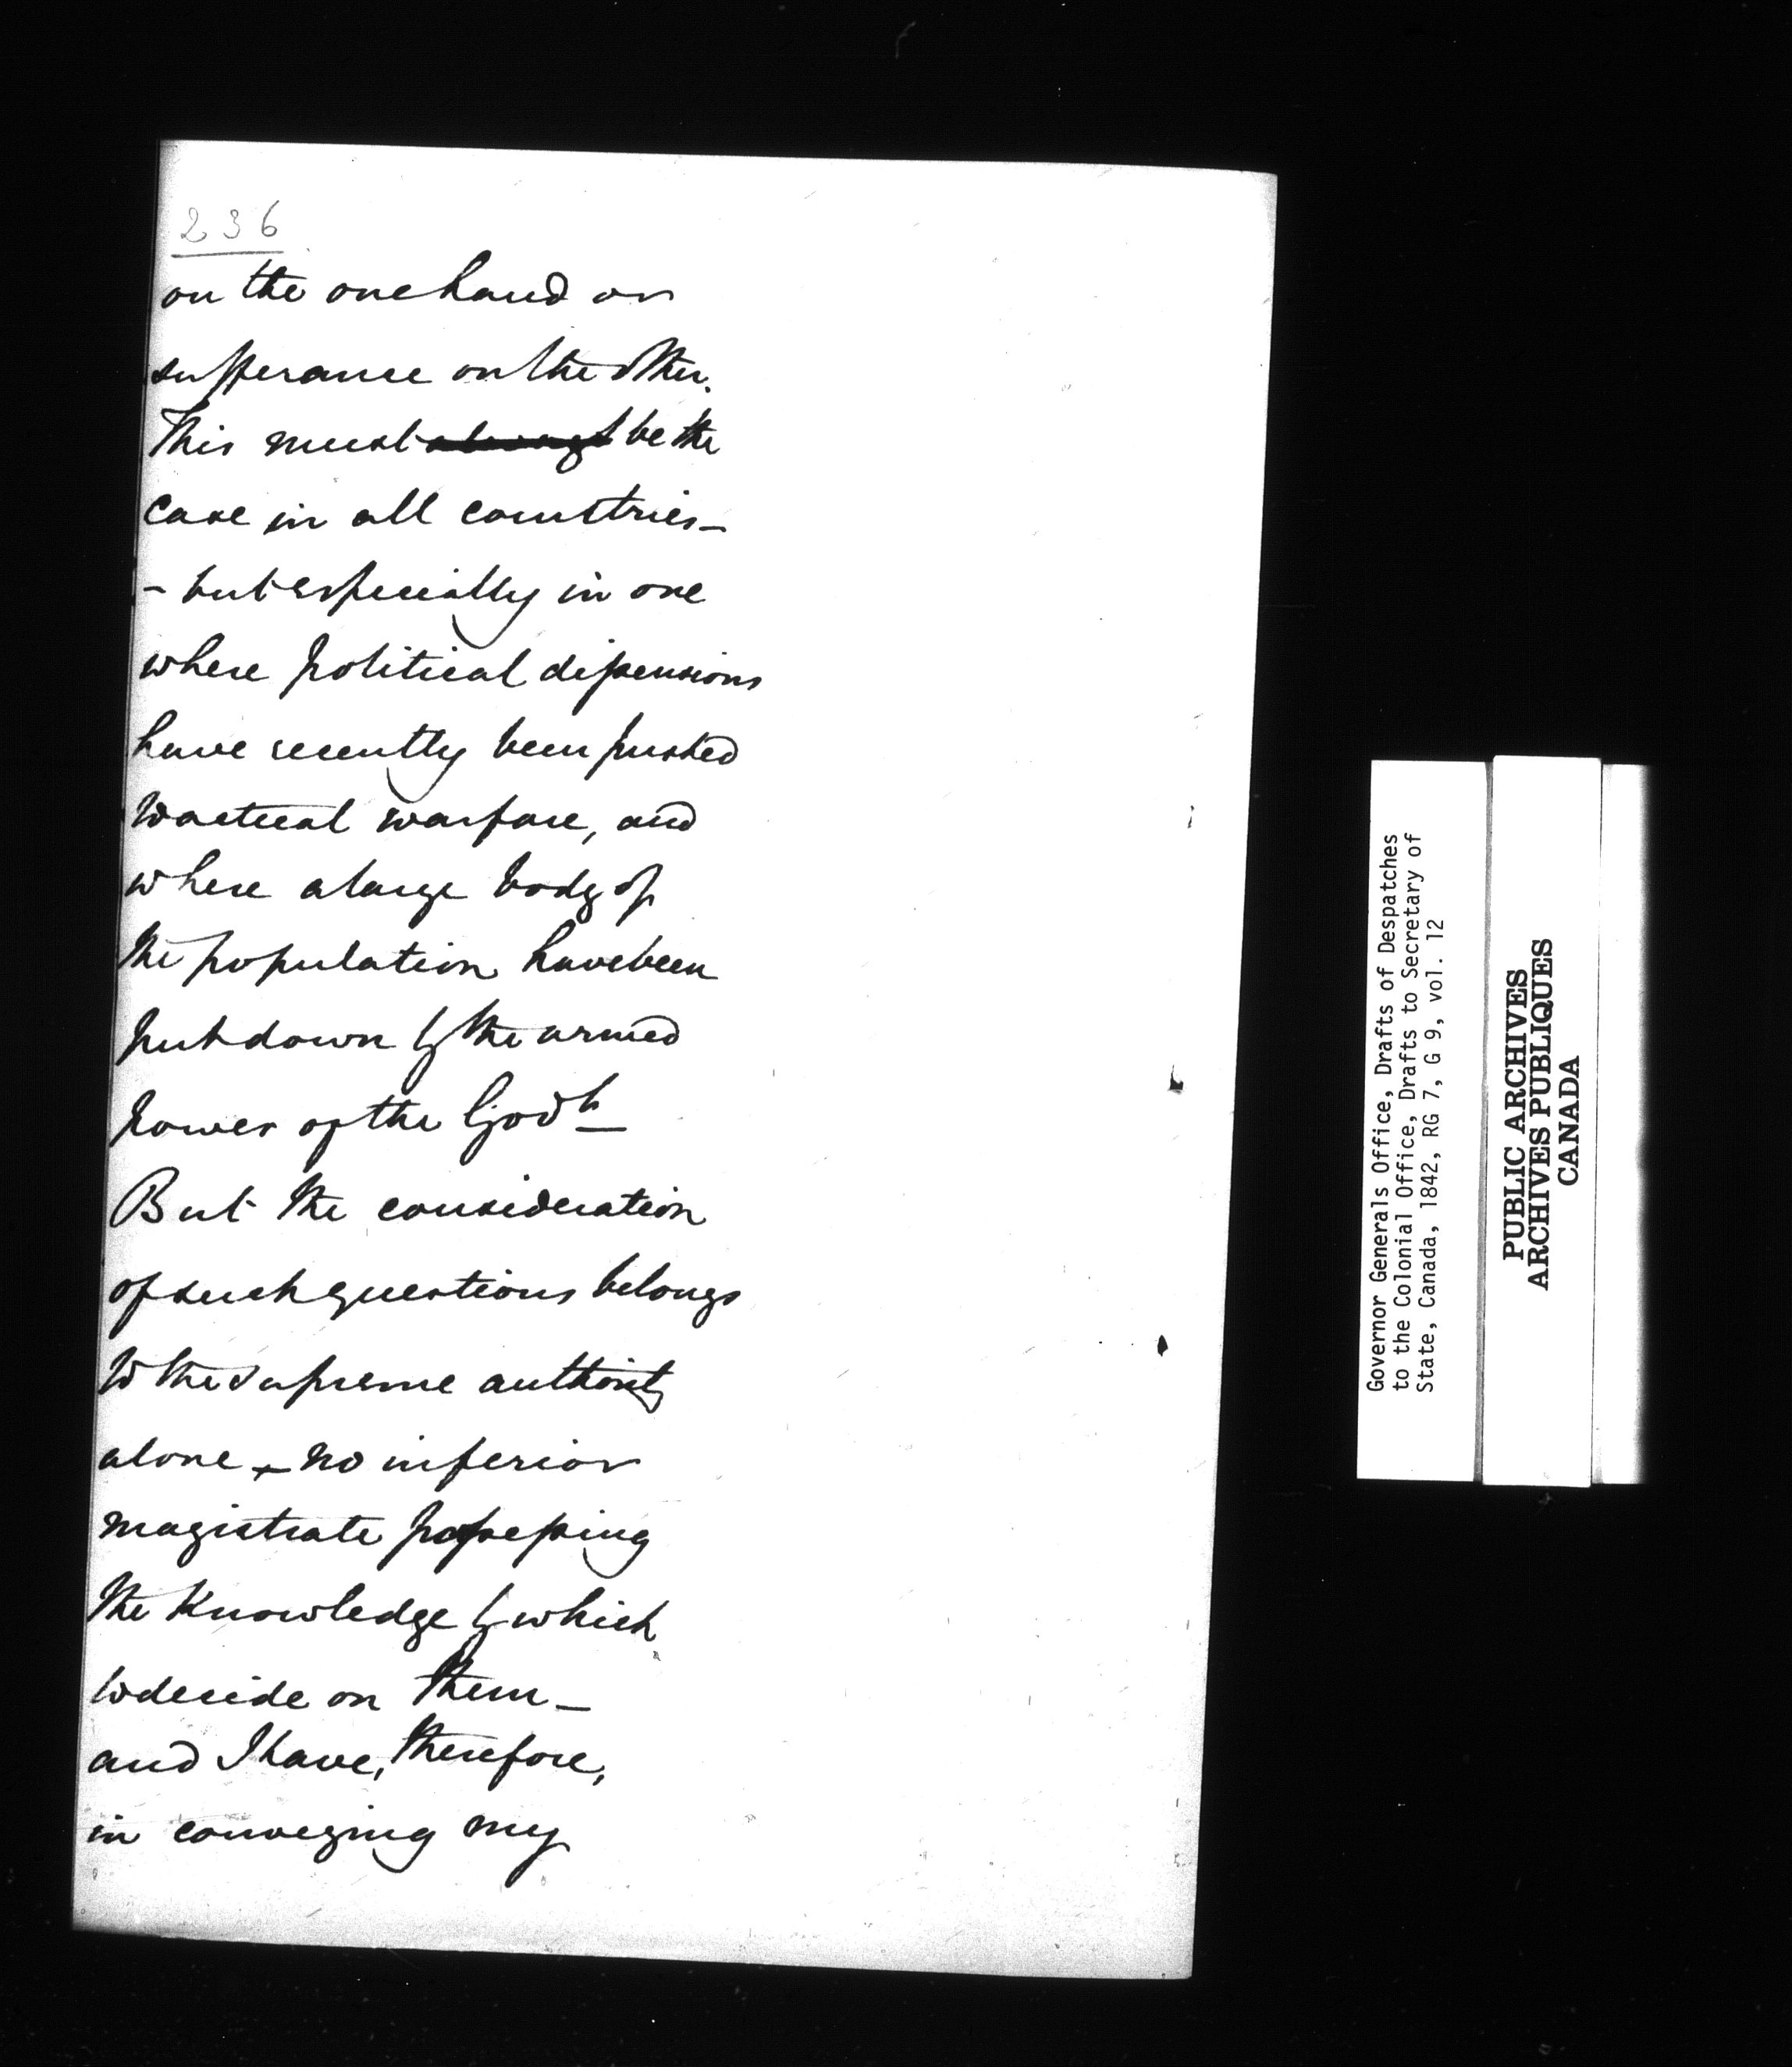 236
on the one hand or
sufferance on the other.
This must always be the
case in all countries -
- but especially in one
where political dissensions
have recently been pushed
to actual warfare, and
where a large body of
the population have been
put down by the armed
power of the Govt
But the consideration
of such questions belongs
to the supreme authority
alone - no inferior
magistrate possessing
the Knowledge by which
to decide on them -
and I have, therefore,
in conveying my
Governor Generals Office, Drafts of Despatches
to the Colonial Office, Drafts to Secretary of
State, Canada, 1842, RG 7, G 9, vol. 12
PUBLIC ARCHIVES
ARCHIVES PUBLIQUES
CANADA